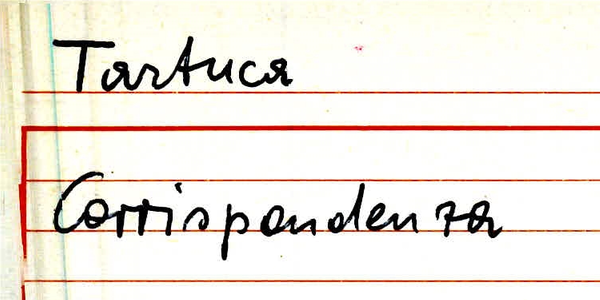 Tartuca
Corrispondenza